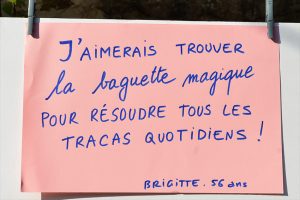 J'AIMERAIS TROUVER
la baguette magique
POUR RÉSOUDRE TOUS LES
TRACAS QUOTIDIENS !
BRIGITTE. 56 ans